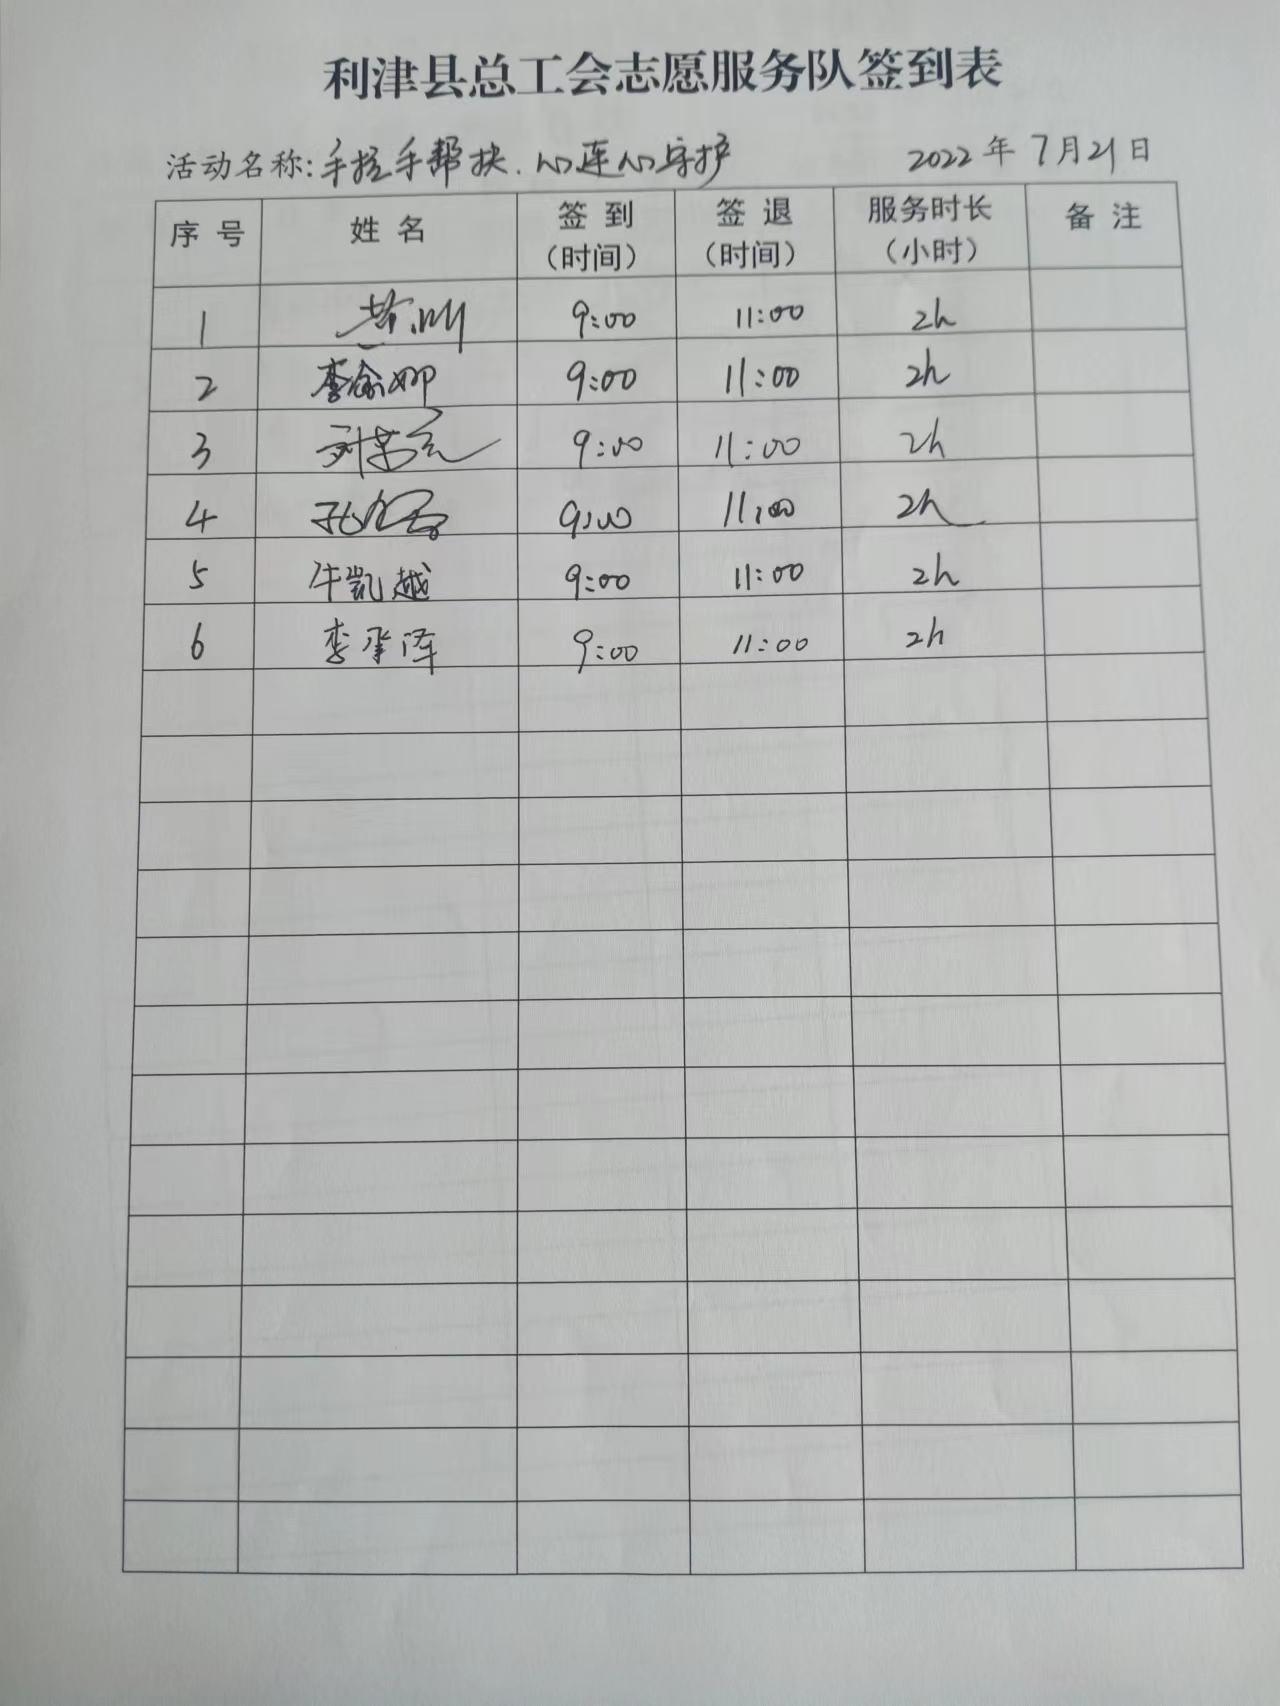 利津县总工会志愿服务队签到表
活动名称:手拉手帮扶.心连心守护 2022年7月21日
序号 姓名 签到(时间) 签退(时间) 服务时长(小时) 备注
1 9:00 11:00 2h
2 李俞娜 9:00 11:00 2h
3 刘 9:00 11:00 2h
4 孔 9:00 11:00 2h
5 牛凯越 9:00 11:00 2h
6 李承泽 9:00 11:00 2h